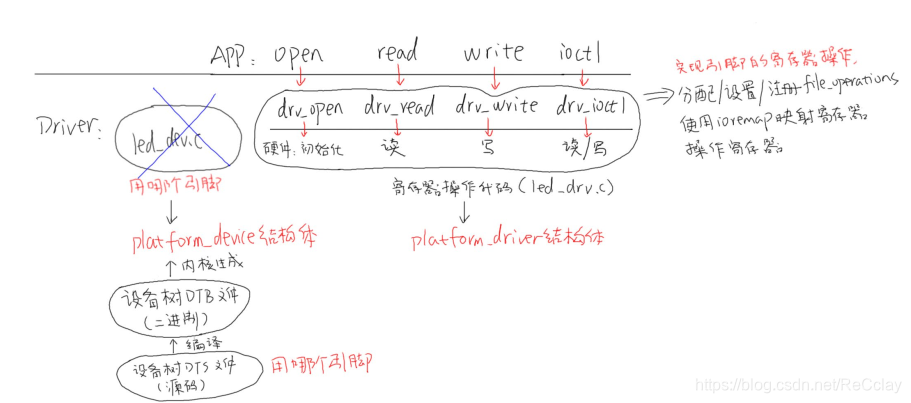 APP: open read write ioctl
实现引脚的寄存器操作.
Driver:
led_dev.c
drv_open drv_read drv_write drv_ioctl
硬件: 初始化 读 写 读/写
⇒ 分配/设置/注册 file_operations
使用ioremap映射寄存器
操作寄存器
用哪个引脚
寄存器操作代码(led_drv.c)
platform_device结构体
platform_driver结构体
↑内核生成
设备树DTB文件
(二进制)
↑编译
设备树DTS文件
(源码)
用哪个引脚
https://blog.csdn.net/ReCclay